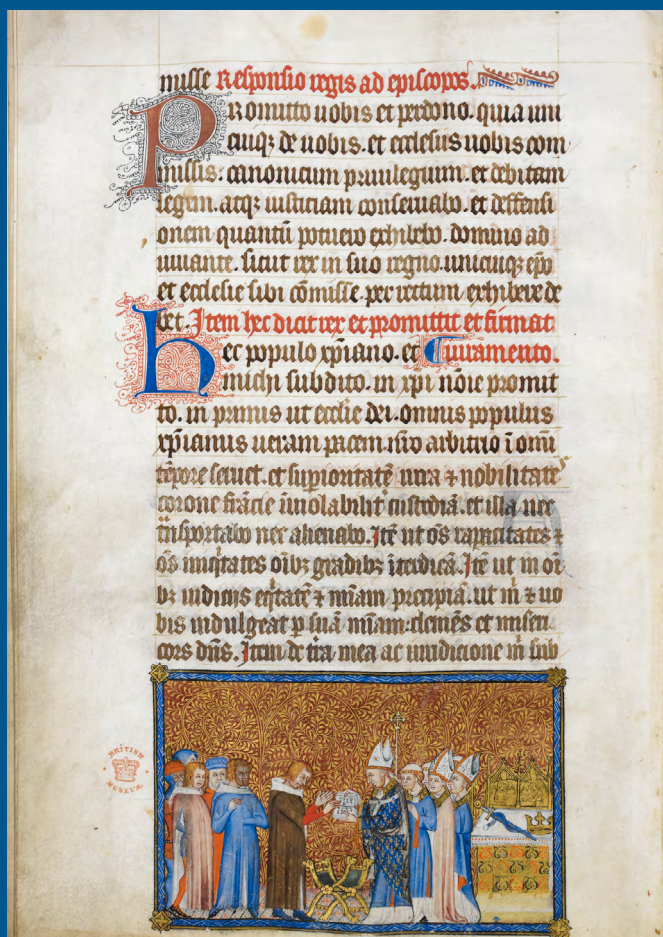 misse Responsio regis ad episcopos.
Promitto uobis et perdono. quia uni
cuiq; de uobis. et ecclesiis uobis com
missis: canonicum priuilegium. et debitam
legem. atq; iusticiam conseruabo. et deffensi
onem quantū potuero exhibebo. domino ad
iuuante. sicut rex in suo regno. unicuiq; ep̄o
et ecclesie sibi cōmisse. per rectum exhibere de
bet. Item hec dicit rex et promittit et firmat
hec populo xp̄iano. et iuramento.
michi subdito. in xp̄i nōie promit
to. in primis ut eccl̄ie dei. omnis populus
xp̄ianus ueram pacem. nr̄o arbitrio ī omī
tēpore seruet. et supioritatē iura ⁊ nobilitatē
corone francie inuiolabilit̄ custodiā. et illa nec
trāsportabo nec alienabo. Itē ut ōs rapacitates ⁊
ōs iniqitates oīb; gradib; īterdicā. Itē ut in oī
b; iudiciis eq̄tatē ⁊ mīam precipiā. ut m̄ ⁊ uo
bis indulgeat p suā mīam: clemēs et miseri
cors dn̄s. Item de tr̄a mea ac iuridicione m̄ sub
BRITISH
MUSEUM